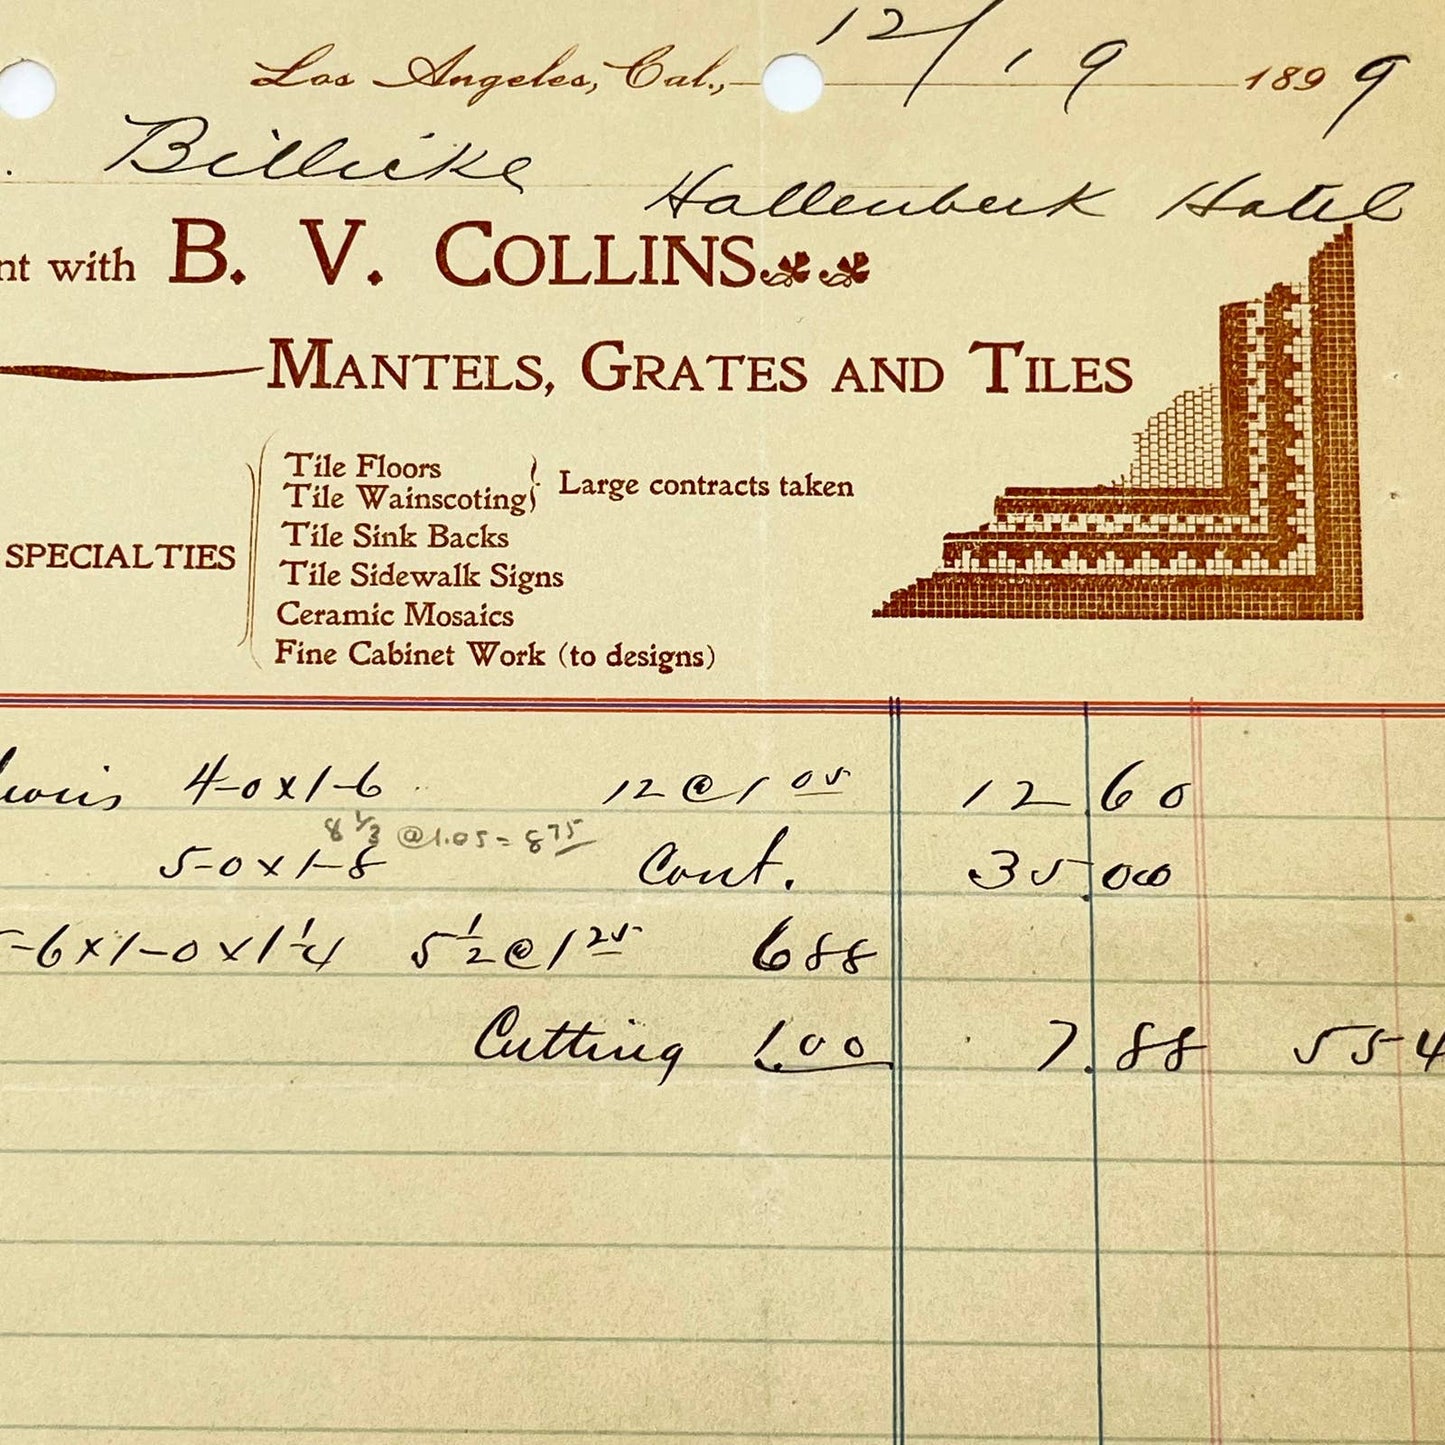 Los Angeles, Cal., 12/19 1899
Billicke Hollenbeck Hotel
nt with B. V. COLLINS
MANTELS, GRATES AND TILES
SPECIALTIES
Tile Floors
Tile Wainscoting
Large contracts taken
Tile Sink Backs
Tile Sidewalk Signs
Ceramic Mosaics
Fine Cabinet Work (to designs)
4-0 x 1-6 12 @ 1 05 12 60
8 1/3 @ 1.05 = 8 75
5-0 x 1-8 Cont. 35.00
-6 x 1-0 x 1 1/4 5 1/2 @ 1 25 6 88
Cutting 1.00 7.88 55 4